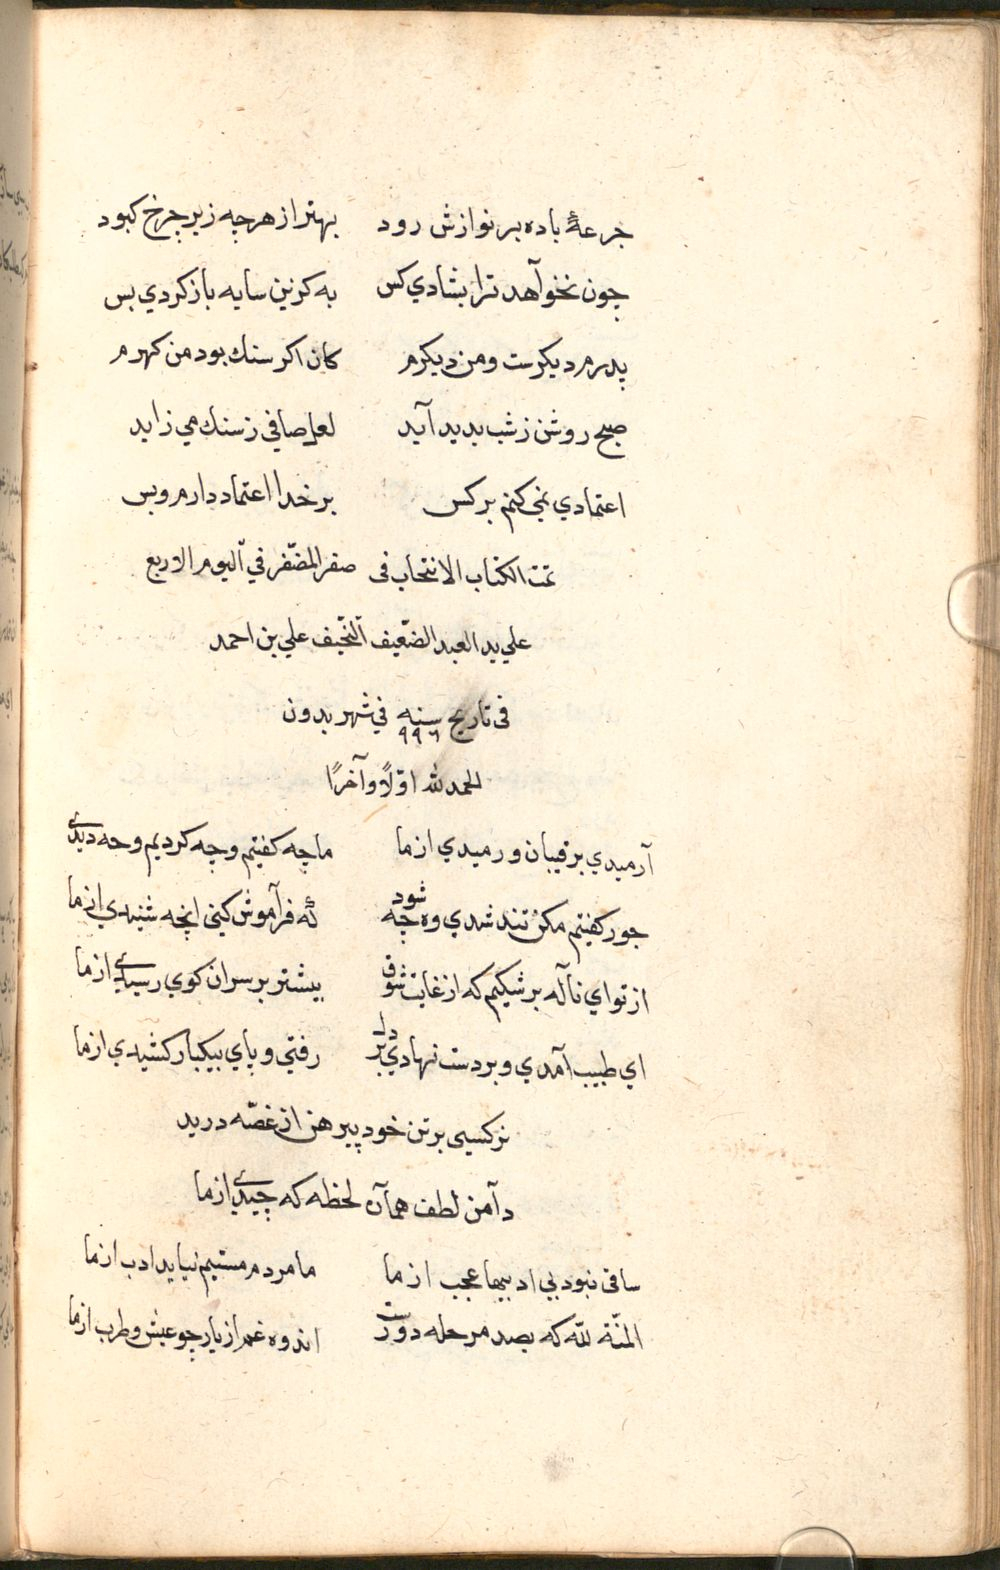 جرعهٔ باده بر نوازش رود    بهتر از هرجه زیر جرخ کبود
جون نخواهد ترا بشادي کس    به کزین سایه باز کردي بس
پدرم دیکرست ومن دیکرم    کان اکر سنك بود من کهرم
صبح روشن زشب بدید آید    لعل صافي زسنك مي زاید
اعتمادي نمي کنم بر کس    بر خدا اعتماد دارم وبس
تمت الکتاب الانتخاب فی صفر المضفّر في الیوم الاربع
علي ید العبد الضّعیف النّحیف علي بن احمد
فی تاریخ سنه ٩٩٦ في شهر بدون
الحمد لله اوّلاً وآخراً
آرمیدي برقیبان ورمیدي از ما    ما چه کفتیم وجه کردیم وجه دیدي
جور کفتیم مکن تند شدي وه چه شود    که فرآموش کنی انچه شنیدي از ما
از تو اي ناله برشکیم که از غایت شوق    بیشتر بر سران کوي رسیدي از ما
اي طبیب آمدي وبر دست نهادي بر دل    رفتي وپاي بیکبار کشیدي از ما
نرکسی برتن خود پیرهن از غصّه درید
دآمن لطف همآن لحظه که چیدي از ما
ساقی نبود بي ادبیها عجب از ما    ما مردم مستیم نیاید ادب از ما
المنّة لله که بصد مرحله دورست    اندوه غم از یار جو عیش وطرب از ما